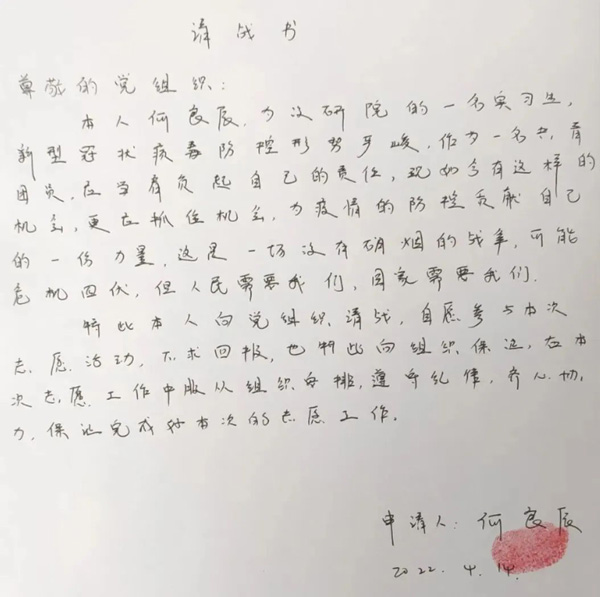 请战书
尊敬的党组织：
本人何良辰，为设研院的一名实习生，
新型冠状病毒防控形势严峻，作为一名共青
团员，应当肩负起自己的责任，现如今有这样的
机会，更应抓住机会，为疫情的防控贡献自己
的一份力量，这是一场没有硝烟的战争，可能
危机四伏，但人民需要我们，国家需要我们．
特此本人向党组织请战，自愿参与本次
志愿活动，不求回报，也特此向组织保证，在本
次志愿工作中服从组织安排，遵守纪律，齐心协
力，保证完成好本次的志愿工作．
申请人：何良辰
2022.4.14.